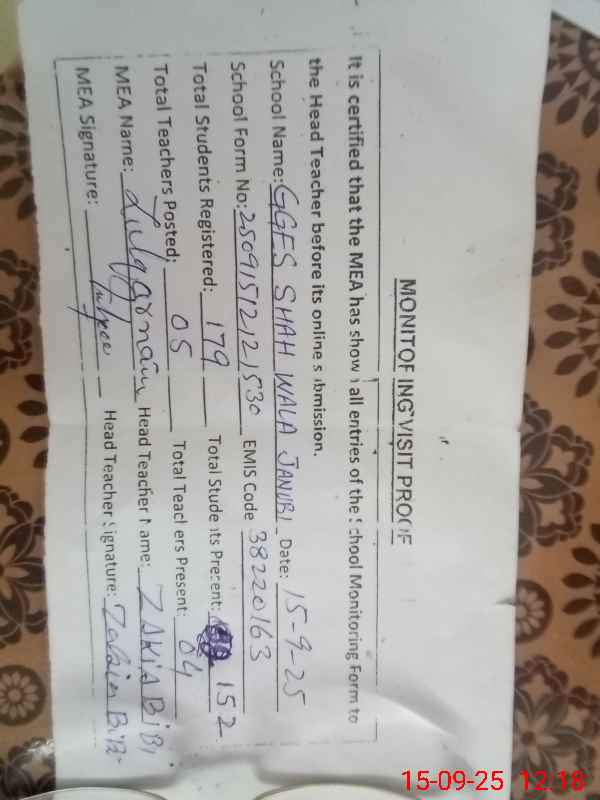 MONITORING VISIT PROOF
It is certified that the MEA has shown all entries of the School Monitoring Form to
the Head Teacher before its online submission.
School Name: GGES SHAH WALA JANUBI Date: 15-9-25
School Form No: 25091512121530 EMIS Code 38220163
Total Students Registered: 179 Total Students Present: 152
Total Teachers Posted: 05 Total Teachers Present: 04
MEA Name: Head Teacher Name: ZAKIA BiBi
MEA Signature: Head Teacher Signature: BiBi
15-09-25 12:18